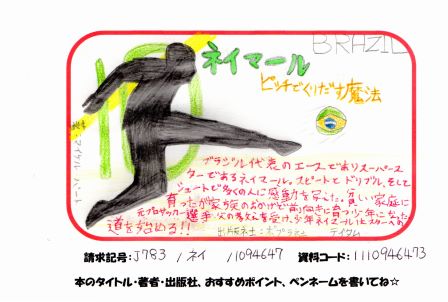 BRAZIL
ネイマール
ピッチでくりだす魔法
10
著者:マイケル・パート
ブラジル代表のエースでありスーパース
ターであるネイマール。スピードとドリブル、そして
シュートで多くの人に感動を与えた。貧しい家庭に
育ったが家族のおかげで前向きに育つ少年になった。
元プロサッカー選手の父の教えを受け、少年ネイマールはスターへの
道を歩み始める!!
出版社:ポプラ社
請求記号:J783 /ネイ /1094647 資料コード:1110946473
本のタイトル・著者・出版社、おすすめポイント、ペンネームを書いてね☆